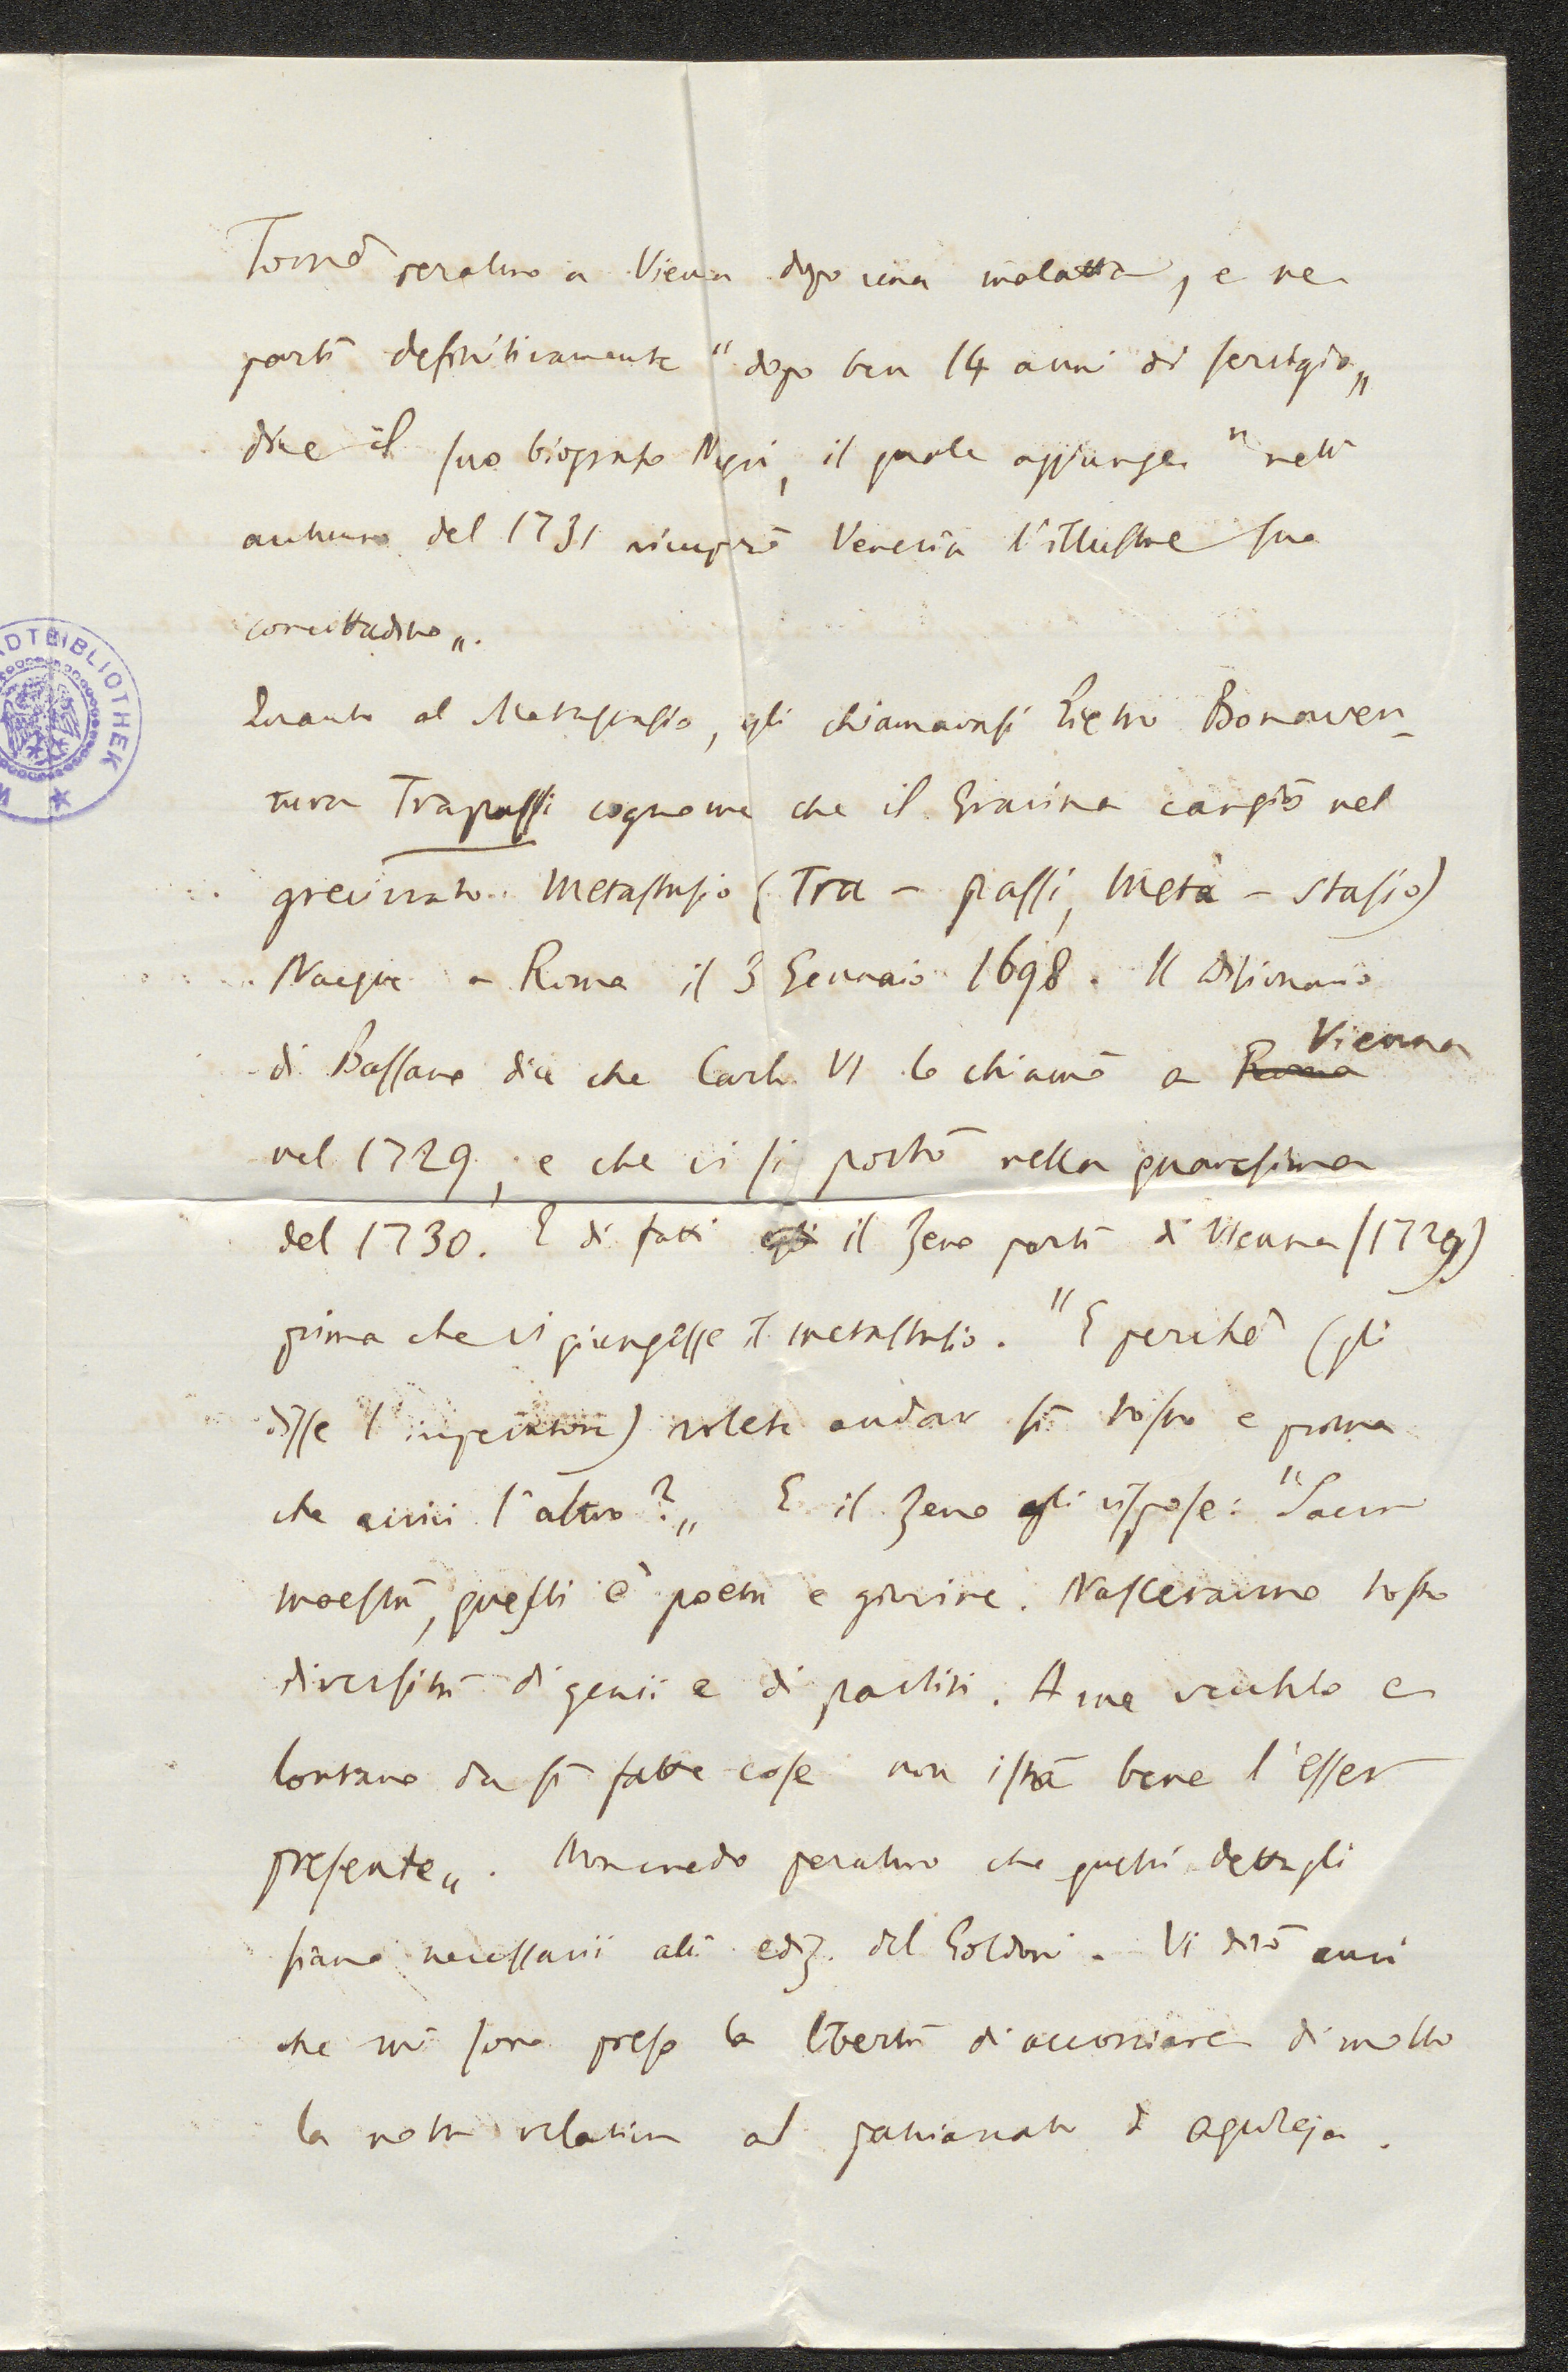 Tornò peraltro a Vienna dopo una malattia, e ne
partì definitivamente "dopo ben 14 anni di servigio„
dice il suo biografo Negri, il quale aggiunge "nell'
autunno del 1731 ricuperò Venezia l'illustre suo
concittadino„.
Quanto al Metastasio, egli chiamavasi Pietro Bonaven-
tura Trapassi cognome che il Gravina cangiò nel
grecizzato Metastasio (Tra - passi, Metà - stasio)
Nacque a Roma il 3 Gennaio 1698. Il Dizionario
di Bassano dice che Carlo VI lo chiamò a Roma Vienna
nel 1729, e che vi si portò nella quaresima
del 1730. E di fatti egli il Zeno partì di Vienna (1729)
prima che vi giungesse il Metastasio. "E perchè (gli
disse l'imperatore) volete andar sì tosto e prima
che arrivi l'altro?„ E il Zeno gli rispose: "Sacra
maestà, questi è poeta e giovine. Nasceranno tosto
diversità di genii e di partiti. A me vecchio e
lontano da sì fatte cose non istà bene l'esser
presente„. Non credo peraltro che questi dettagli
siano necessarii alla ediz. del Goldoni. Vi dirò anzi
che mi sono preso la libertà di accorciare di molto
la nota relativa al patriarcato di Aquileja.
STADTBIBLIOTHEK